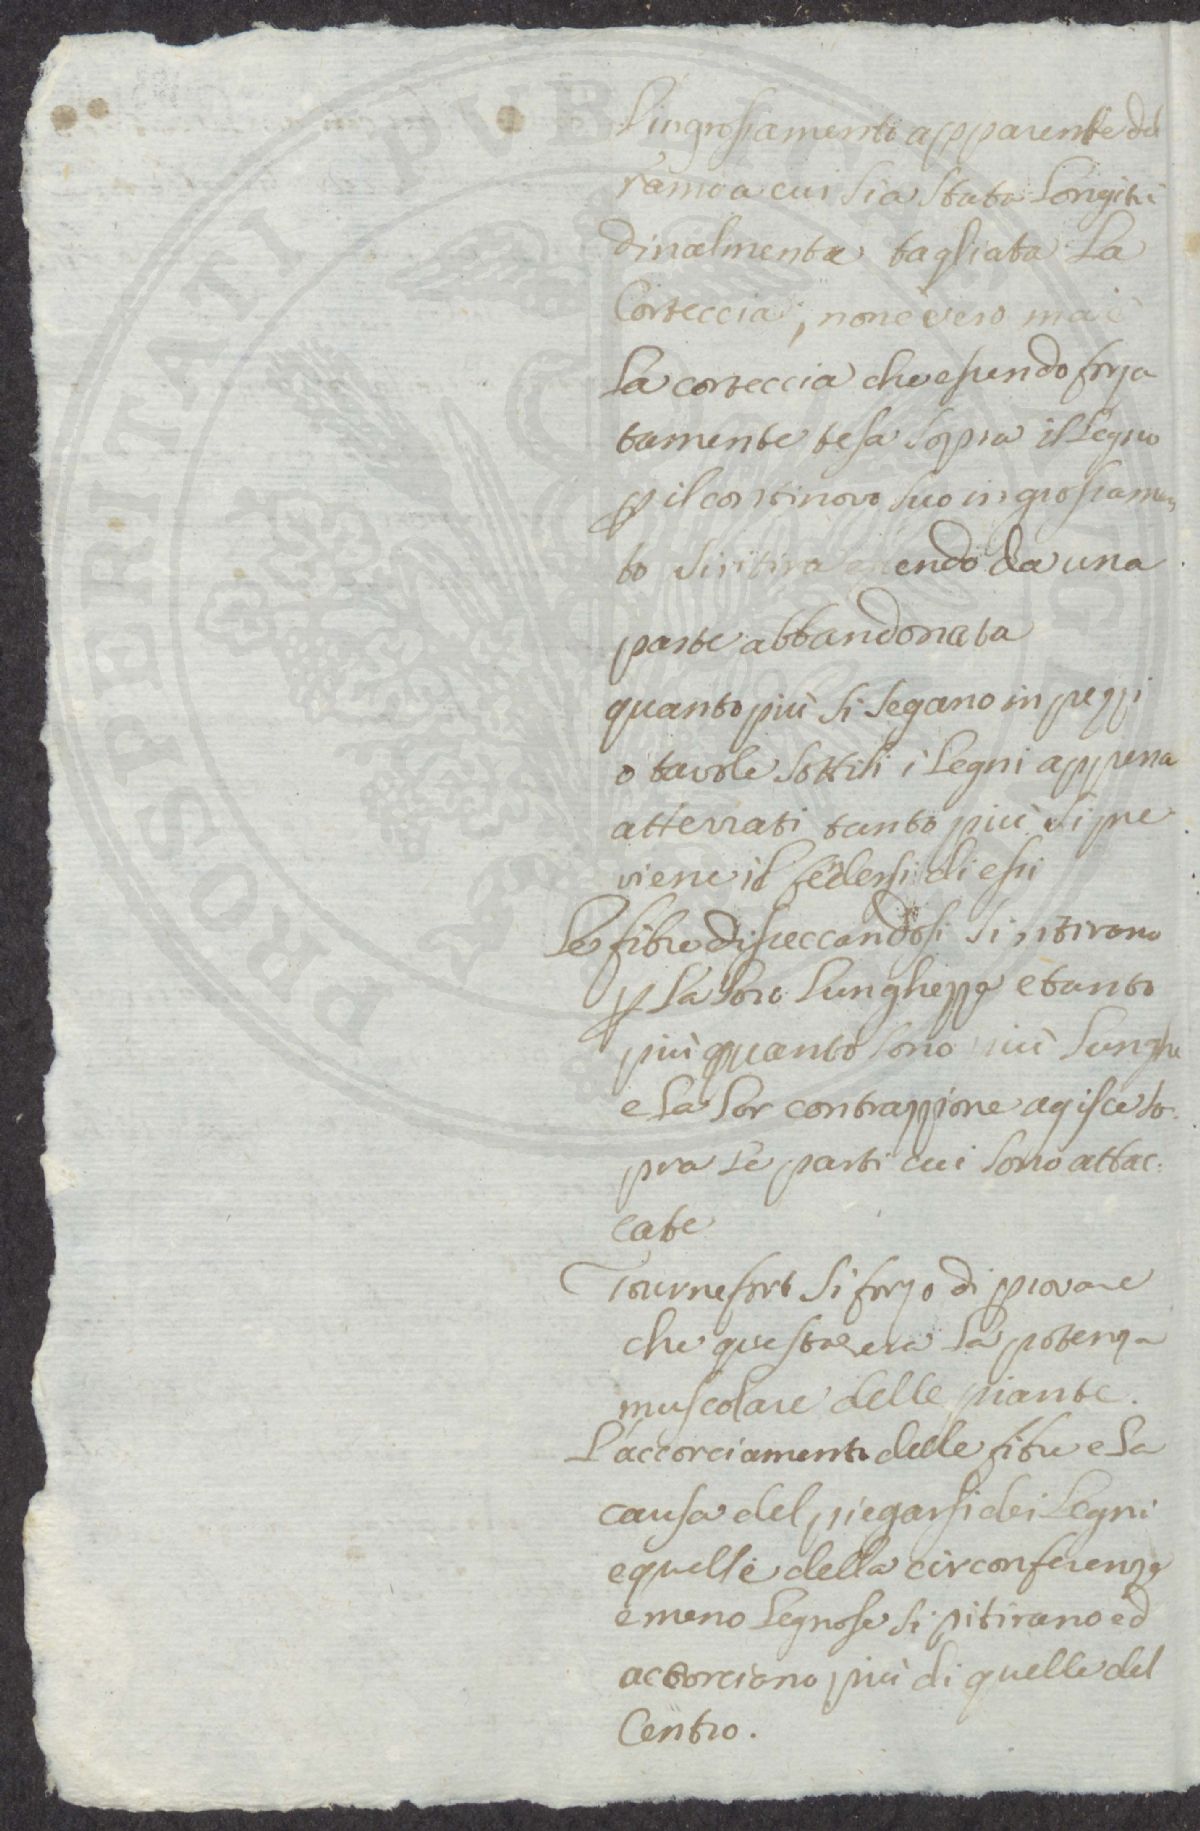 L'ingrossamento apparente del
ramo a cui sia stata Longitu
dinalmente tagliata La
Corteccia, non è vero ma è
La corteccia che essendo forza
tamente tesa sopra il Legno
p il continovo suo ingrossamen
to si ritira essendo da una
parte abbandonata
quanto più si segano in pezzi
o tavole sottili i Legni appena
atterrati tanto più si pre
viene il fendersi di essi
Le fibre disseccandosi si ritirano
p La loro Lunghezza e tanto
più quanto sono più Lunghe
e La Lor contrazzione agisce so-
pra Le parti cui sono attac:
cate
Tournefort si forzo di provare
che questa era La potenza
muscolare delle piante.
L'accorciamento delle fibre e La
causa del piegarsi dei Legni
e quelle della circonferenza
e meno Legnose si ritirano ed
accorciano più di quelle del
Centro.
PROSPERITATI PUBLICAE